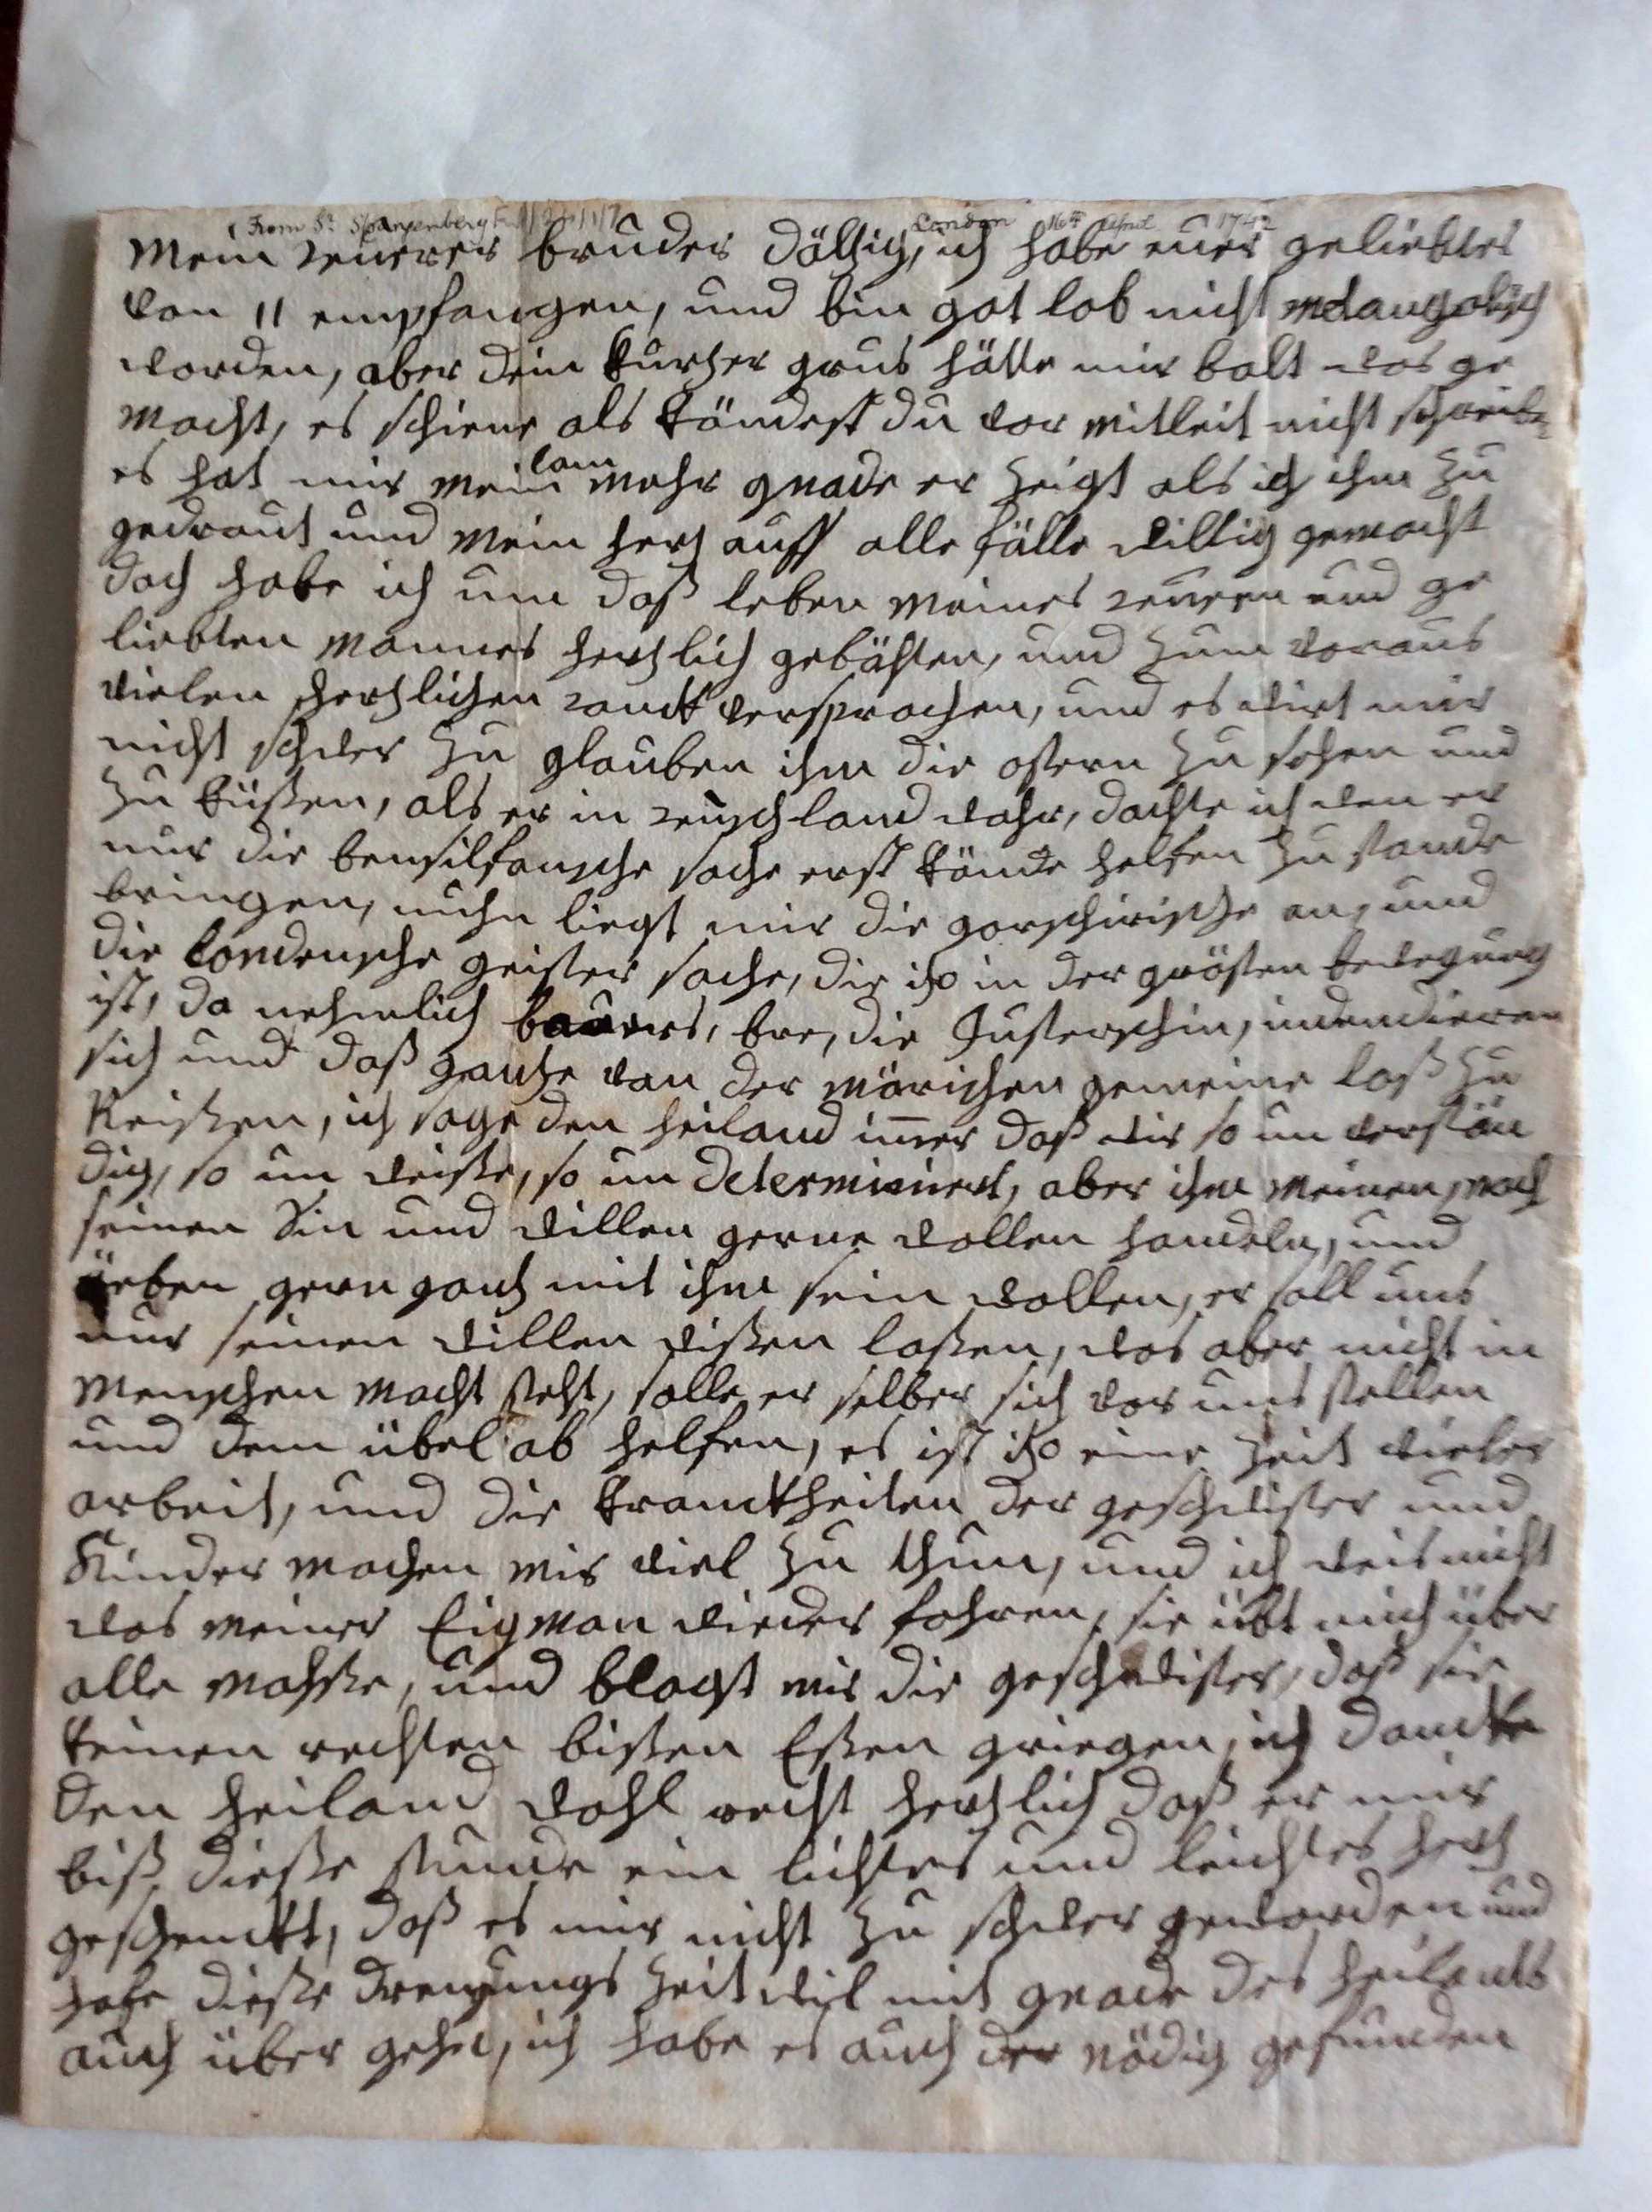 From Sr Spangenberg London 16th April 1742
Mein teurer bruder Döltzig, ich habe euer geliebtes
von 11 empfangen, und bin got lob nicht melangolisch
worden, aber dein kurtzer grus hätte mir balt was ge
macht, es schiene als köndest du vor mitleit nicht schreiben
es hat mir mein lam mehr gnade er zeigt als ich ihm zu
gedraut und mein hertz auff alle fälle willig gemacht
doch habe ich um daß leben meines teuren und ge
liebten mannes hertzlich gebähten, und zum voraus
vielen hertzlichen danck versprochen, und es wirt mir
nicht schwer zu glauben ihm die ostern zu sehen und
zu küßen, als er in teuschland wahr, dachte ich wen er
nur die bensilfansche sache erst könde helfen zu stande
bringen, nuhn liegt mir die gorschirische an, und
die londensche geister sache, die itzo in der grösten bewegung
ist, da nehmlich bauers, bre, die Husterschin, indendieren
sich und daß gantze von der mörischen gemeine loß zu
Reißen, ich sage den heiland imer daß wir so un verstän
dig, so un weiße, so un determiniert, aber ihn meinen, nach
seinen Sin und willen gerne wollen handeln, und
eben gern gantz mit ihm sein wollen, er soll uns
nur seinen willen wißen laßen, was aber nicht in
menschen macht steht, solle er selber sich vor uns stellen
und dem übel ab helfen, es ist itzo eine zeit vieler
arbeit, und die kranckheiten der geschwister und
Kinder machen mir viel zu thun, und ich weis nicht
was meiner Eigman wieder fahren, sie übt mich über
alle mahße, und blagt mir die geschwister, daß sie
keinen rechten bißen Eßen griegen, ich dancke
den heiland wohl recht hertzlich daß er mir
biß dieße stunde ein lichtes und leichtes hertz
geschenckt, daß es mir nicht zu schwer geworden und
hoffe dieße drennungs zeit wil mit gnade des heilants
auch über gehen, ich habe es auch der nödig gefunden